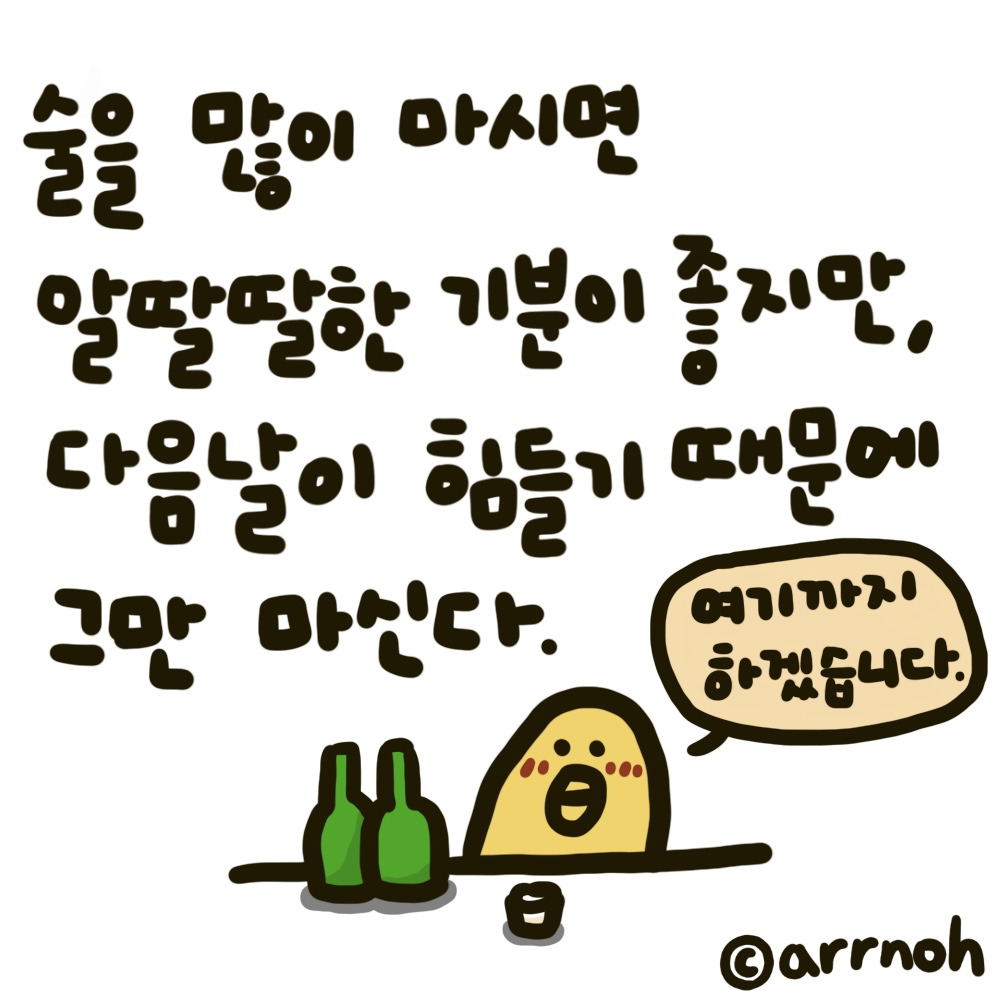 술을 많이 마시면
알딸딸한 기분이 좋지만,
다음날이 힘들기 때문에
그만 마신다.
여기까지
하겠습니다.
©arrnoh